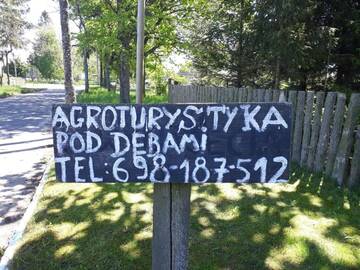 AGROTURYSTYKA
POD DĘBAMI
TEL: 698-187-512